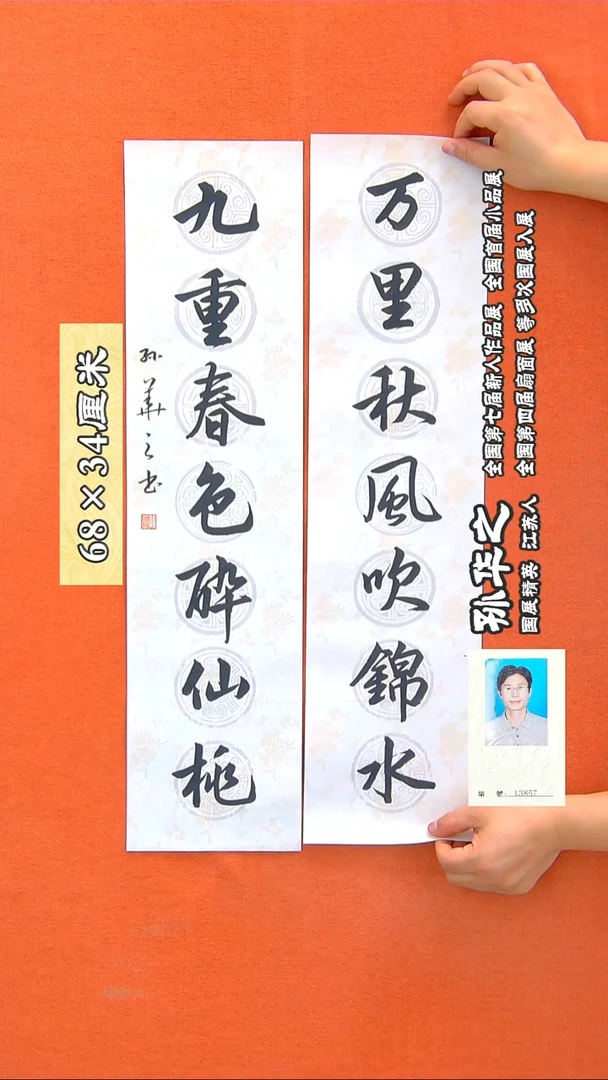 万里秋風吹錦水
九重春色醉仙桃
孙華之书
68×34厘米
孙华之
国展精英 江苏人
全国第七届新人作品展 全国首届小品展
全国第四届扇面展 等多次国展入展
第 號: 13857